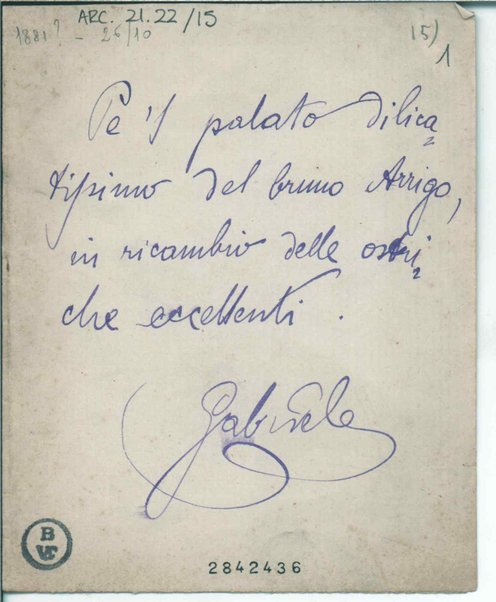 ARC. 21.22/15
1881? - 26/10
15)
1
Pe 'l palato dilica=
tissimo del bruno Arrigo,
in ricambio delle ostri=
che eccellenti.
Gabriele
B
VE
2842436